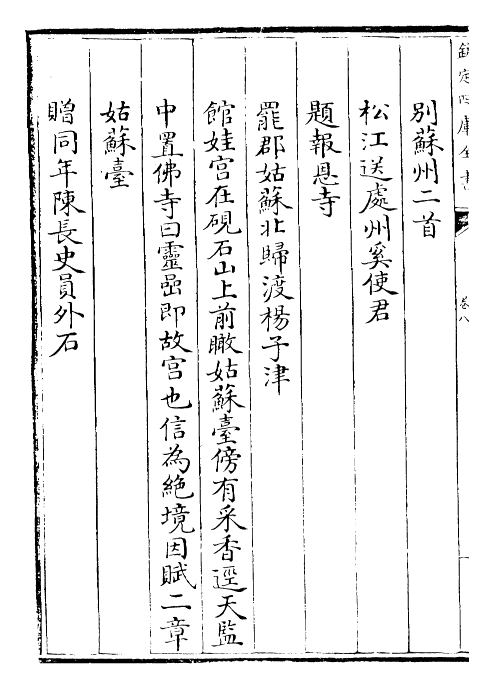 欽定四庫全書
卷八
別蘇州二首
松江送處州奚使君
題報恩寺
罷郡姑蘇北歸渡楊子津
館娃宮在硯石山上前瞰姑蘇臺傍有采香逕天監
中置佛寺曰靈嵒即故宮也信為絶境因賦二章
姑蘇臺
贈同年陳長史員外石